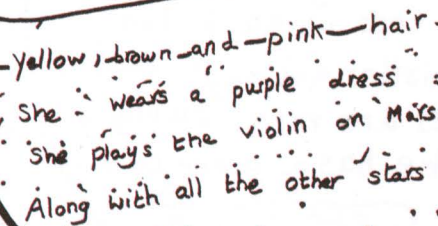 yellow, brown and pink hair.
She wears a purple dress
She plays the violin on Mars
Along with all the other stars